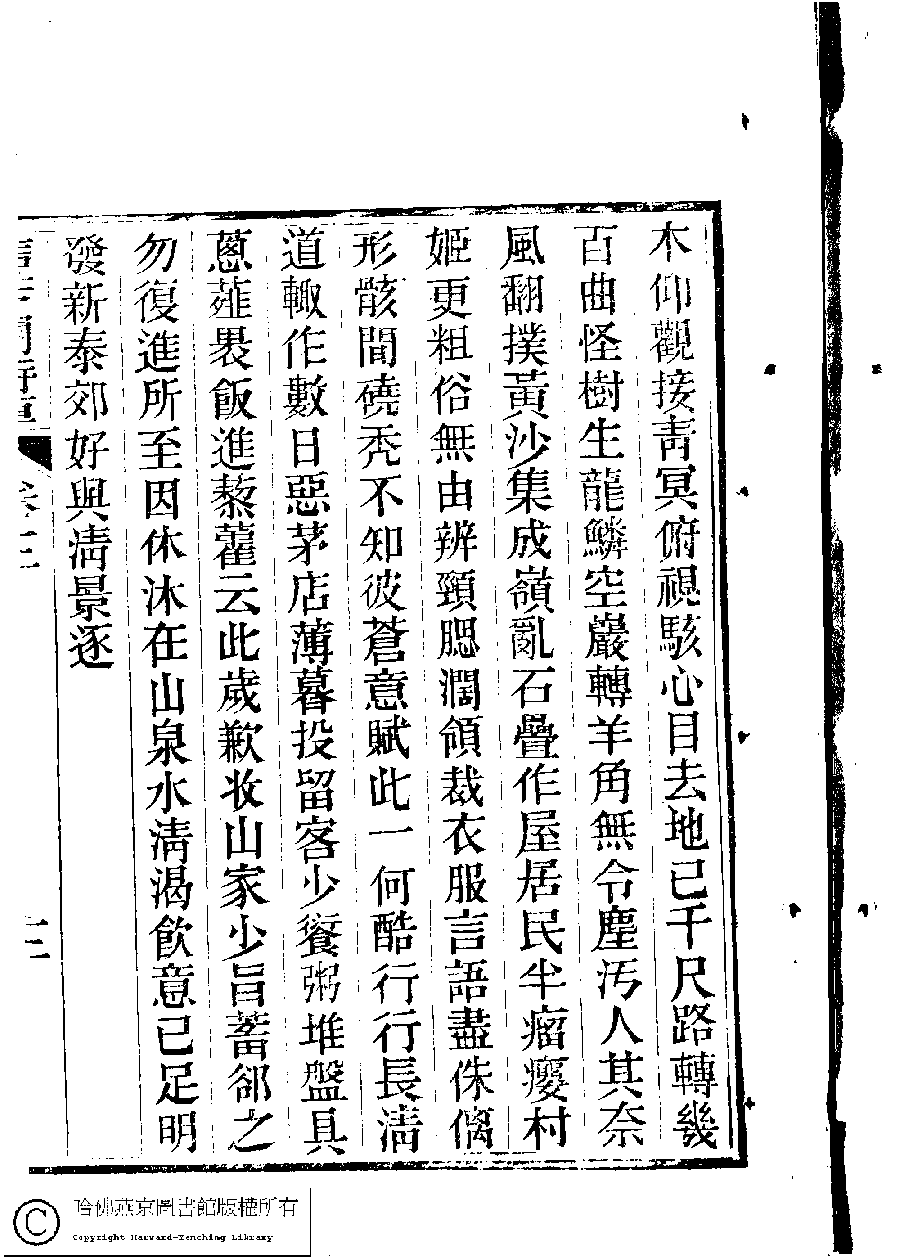 木仰觀接靑冥俯視駭心目去地已千尺路轉幾
百曲怪樹生龍鱗空巖轉羊角無令塵汚人其奈
風翻撲黃沙集成嶺亂石疊作屋居民半瘤癭村
姬更粗俗無由辨頸腮濶領裁衣服言語盡侏㒧
形骸間磽秃不知彼蒼意賦此一何酷行行長淸
道輙作數日惡茅店薄暮投留客少餐粥堆盤具
蔥薤㬥飯進藜藿云此歲歉收山家少旨蓄郤之
勿復進所至因休沐在山泉水淸渴飮意已足明
發新泰郊好與淸景逐
卷十三
十二
哈佛燕京圖書館版權所有
Copyright Harvard-Yenching Library